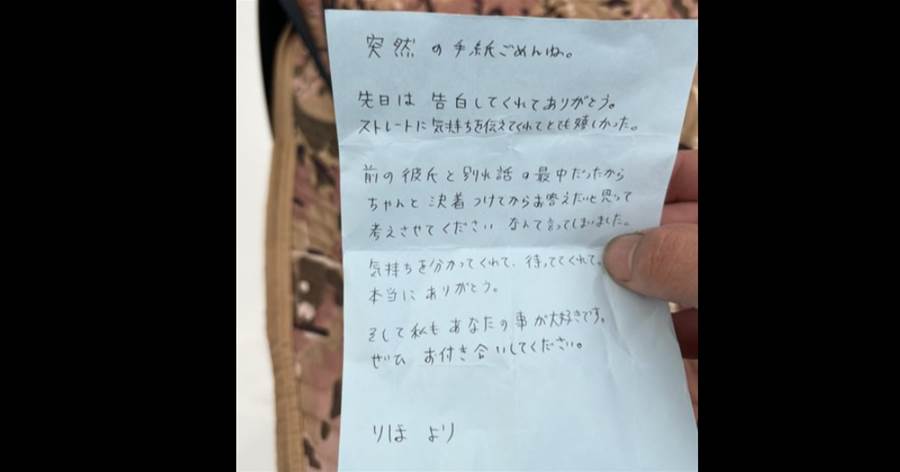 突然の手紙ごめんね。
先日は 告白してくれてありがとう。
ストレートに気持ちを伝えてくれてとても嬉しかった。
前の彼氏と別れ話の最中だったから
ちゃんと決着つけてからお答えたいと思って
考えさせてください なんて言ってしまいました。
気持ちを分かってくれて、待っててくれて。
本当に ありがとう。
そして私も あなたの事が大好きです。
ぜひ お付き合いしてください。
りほ より